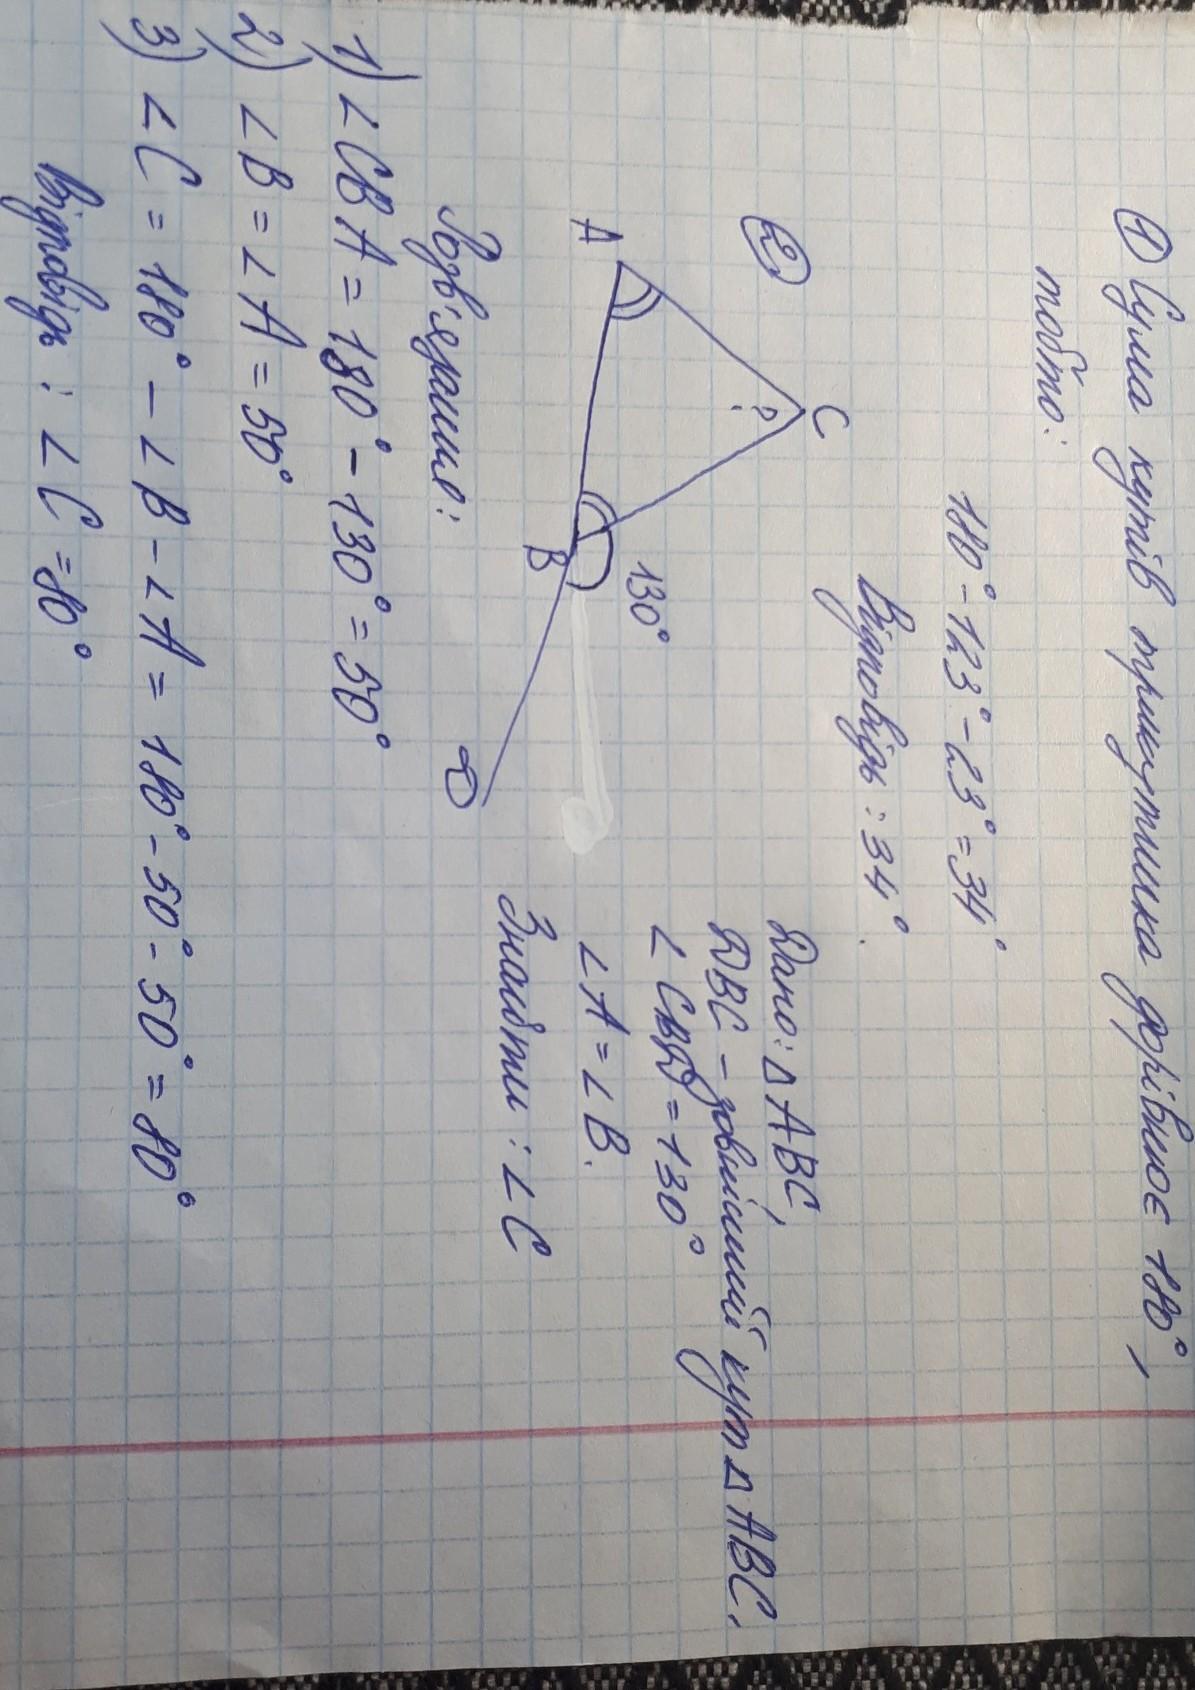 ① Сума кутів трикутника дорівнює 180°,
тобто:
180° - 123° - 23° = 34°
Відповідь: 34°.
②
C
?
A
B
130°
D
Дано: △ABC,
DBC - зовнішний кут △ABC,
∠CBD = 130°
∠A = ∠B.
Знайти: ∠C
Розв'язання:
1) ∠CBA = 180° - 130° = 50°
2) ∠B = ∠A = 50°
3) ∠C = 180° - ∠B - ∠A = 180° - 50° - 50° = 80°
Відповідь: ∠C = 80°